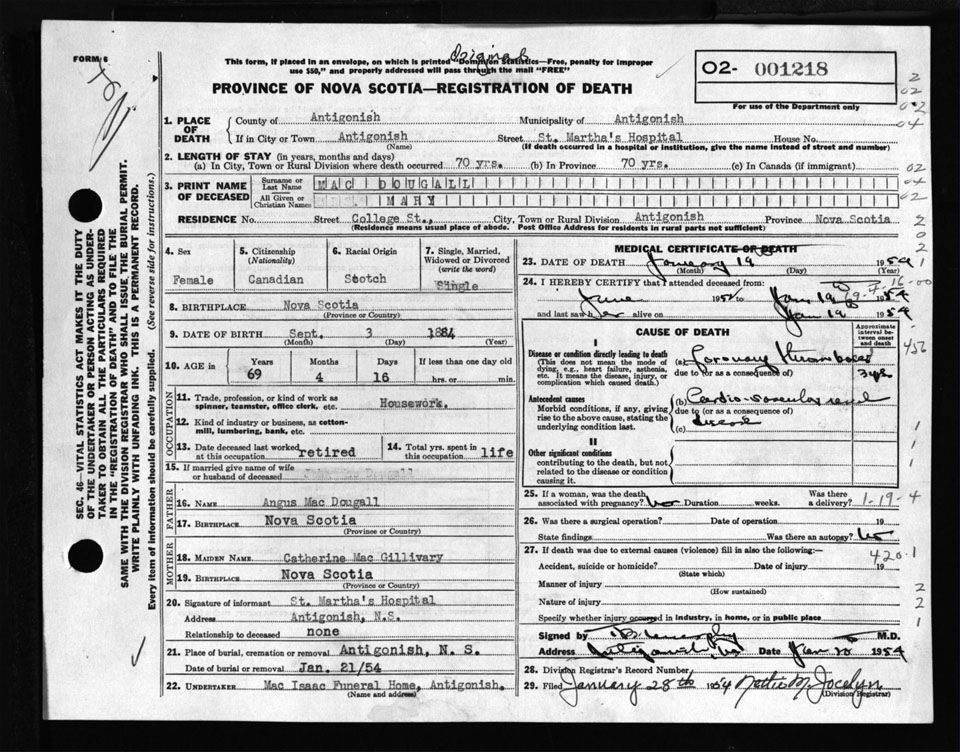 Original
FORM 6
This form, if placed in an envelope, on which is printed "Dominion Statistics—Free, penalty for improper
use $50," and properly addressed will pass through the mail "FREE"
02- 001218
For use of the Department only
PROVINCE OF NOVA SCOTIA—REGISTRATION OF DEATH
1. PLACE OF DEATH
County of Antigonish Municipality of Antigonish
If in City or Town Antigonish Street St. Martha's Hospital House No.
(Name) (If death occurred in a hospital or institution, give the name instead of street and number)
2. LENGTH OF STAY (in years, months and days)
(a) In City, Town or Rural Division where death occurred 70 yrs. (b) In Province 70 yrs. (c) In Canada (if immigrant)
3. PRINT NAME OF DECEASED
Surname or Last Name MAC DOUGALL
All Given or Christian Names MARY
RESIDENCE No. Street College St., City, Town or Rural Division Antigonish Province Nova Scotia
(Residence means usual place of abode. Post Office Address for residents in rural parts not sufficient)
4. Sex Female
5. Citizenship (Nationality) Canadian
6. Racial Origin Scotch
7. Single, Married, Widowed or Divorced (write the word) Single
8. BIRTHPLACE Nova Scotia
(Province or Country)
9. DATE OF BIRTH Sept. 3 1884
(Month) (Day) (Year)
10. AGE in Years 69 Months 4 Days 16 If less than one day old hrs. or min.
OCCUPATION
11. Trade, profession, or kind of work as spinner, teamster, office clerk, etc. Housework.
12. Kind of industry or business, as cotton-mill, lumbering, bank, etc.
13. Date deceased last worked at this occupation retired
14. Total yrs. spent in this occupation life
15. If married give name of wife or husband of deceased
FATHER
16. NAME Angus Mac Dougall
17. BIRTHPLACE Nova Scotia
(Province or Country)
MOTHER
18. MAIDEN NAME Catherine Mac Gillivary
19. BIRTHPLACE Nova Scotia
(Province or Country)
20. Signature of informant St. Martha's Hospital
Address Antigonish, N.S.
Relationship to deceased none
21. Place of burial, cremation or removal Antigonish, N. S.
Date of burial or removal Jan. 21/54
22. UNDERTAKER Mac Isaac Funeral Home, Antigonish.
(Name and address)
MEDICAL CERTIFICATE OF DEATH
23. DATE OF DEATH January 19 1954
(Month) (Day) (Year)
24. I HEREBY CERTIFY that I attended deceased from:
June 195 to Jan 19 1954
and last saw her alive on Jan 19 1954
CAUSE OF DEATH
Approximate interval between onset and death
I
Disease or condition directly leading to death
(This does not mean the mode of dying, e.g., heart failure, asthenia, etc. It means the disease, injury, or complication which caused death.)
(a) Coronary thrombosis
due to (or as a consequence of)
Antecedent causes
Morbid conditions, if any, giving rise to the above cause, stating the underlying condition last.
(b) Cardio-vascular renal
due to (or as a consequence of)
disease
(c)
II
Other significant conditions
contributing to the death, but not related to the disease or condition causing it.
25. If a woman, was the death associated with pregnancy? No Duration weeks. Was there a delivery? 1-19-4
26. Was there a surgical operation? Date of operation 19
State findings Was there an autopsy? No
27. If death was due to external causes (violence) fill in also the following:—
420.1
Accident, suicide or homicide? Date of injury 19
(State which)
Manner of injury
(How sustained)
Nature of injury
Specify whether injury occurred in industry, in home, or in public place
Signed by M.D.
Address Antigonish, NS Date Jan 20 1954
28. Division Registrar's Record Number
29. Filed January 28th 1954 Nettie M. Jocelyn
(Division Registrar)
SEC. 46—VITAL STATISTICS ACT MAKES IT THE DUTY
OF THE UNDERTAKER OR PERSON ACTING AS UNDER-
TAKER TO OBTAIN ALL THE PARTICULARS REQUIRED
IN THE "REGISTRATION OF DEATH" AND TO FILE THE
SAME WITH THE DIVISION REGISTRAR WHO SHALL ISSUE THE BURIAL PERMIT.
WRITE PLAINLY WITH UNFADING INK. THIS IS A PERMANENT RECORD.
Every item of information should be carefully supplied. (See reverse side for instructions.)